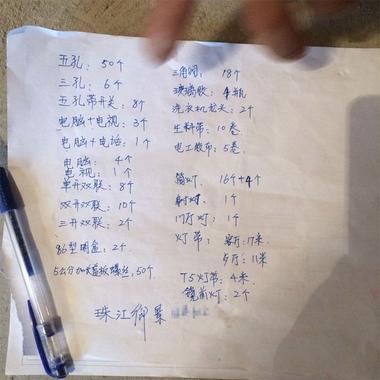 五孔：50个
三孔：6个
五孔带开关：8个
电脑+电视：3个
电脑+电话：1个
电脑：4个
电视：1个
单开双联：8个
双开双联：10个
三开双联：2个
86型明盒：2个
5公分加长盖板螺丝，50个
三角阀：18个
玻璃胶：4瓶
洗衣机龙头：2个
生料带：10卷
电工胶布：5卷
筒灯：16个+4个
射灯：1个
门厅灯：1个
灯带：客厅：17米
11米
T5灯带：4米
镜前灯：2个
珠江御景